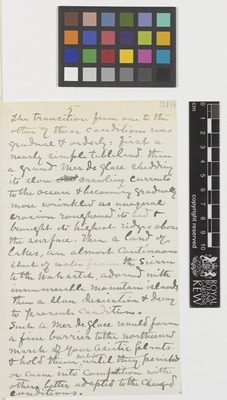 5
316
The transition from one to the
other of these conditions was
gradual & orderly: first a
nearly simple tableland then
a grand Mer de glace shedding
its slow crawling currents
to the ocean & becoming gradually
more wrinkled as unequal
erosion roughened its bed &
brought its highest ridges above
the surface. Then a land of
lakes, an almost continuous
sheet of water from the Sierra
to the Wahsatch, adorned with
innumerable mountain islands
then a slow desiccation & decay
to present conditions.
Such a Mer de glace would form
a fine barrier to the northward
march of your Asiatic plants
& hold them until they perished
or came into competition with
others better adapted to the changed
conditions.
copyright reserved
ROYAL BOTANIC GARDENS
KEW